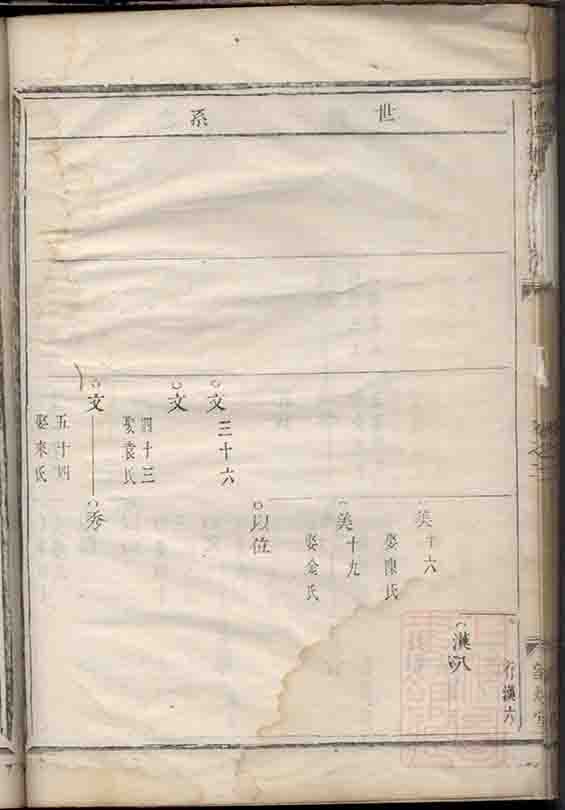 世系
行漢六
漢八
美十六
娶陳氏
美十九
娶金氏
以位
文三十六
文
四十三
娶袁氏
文
秀
五十四
娶來氏